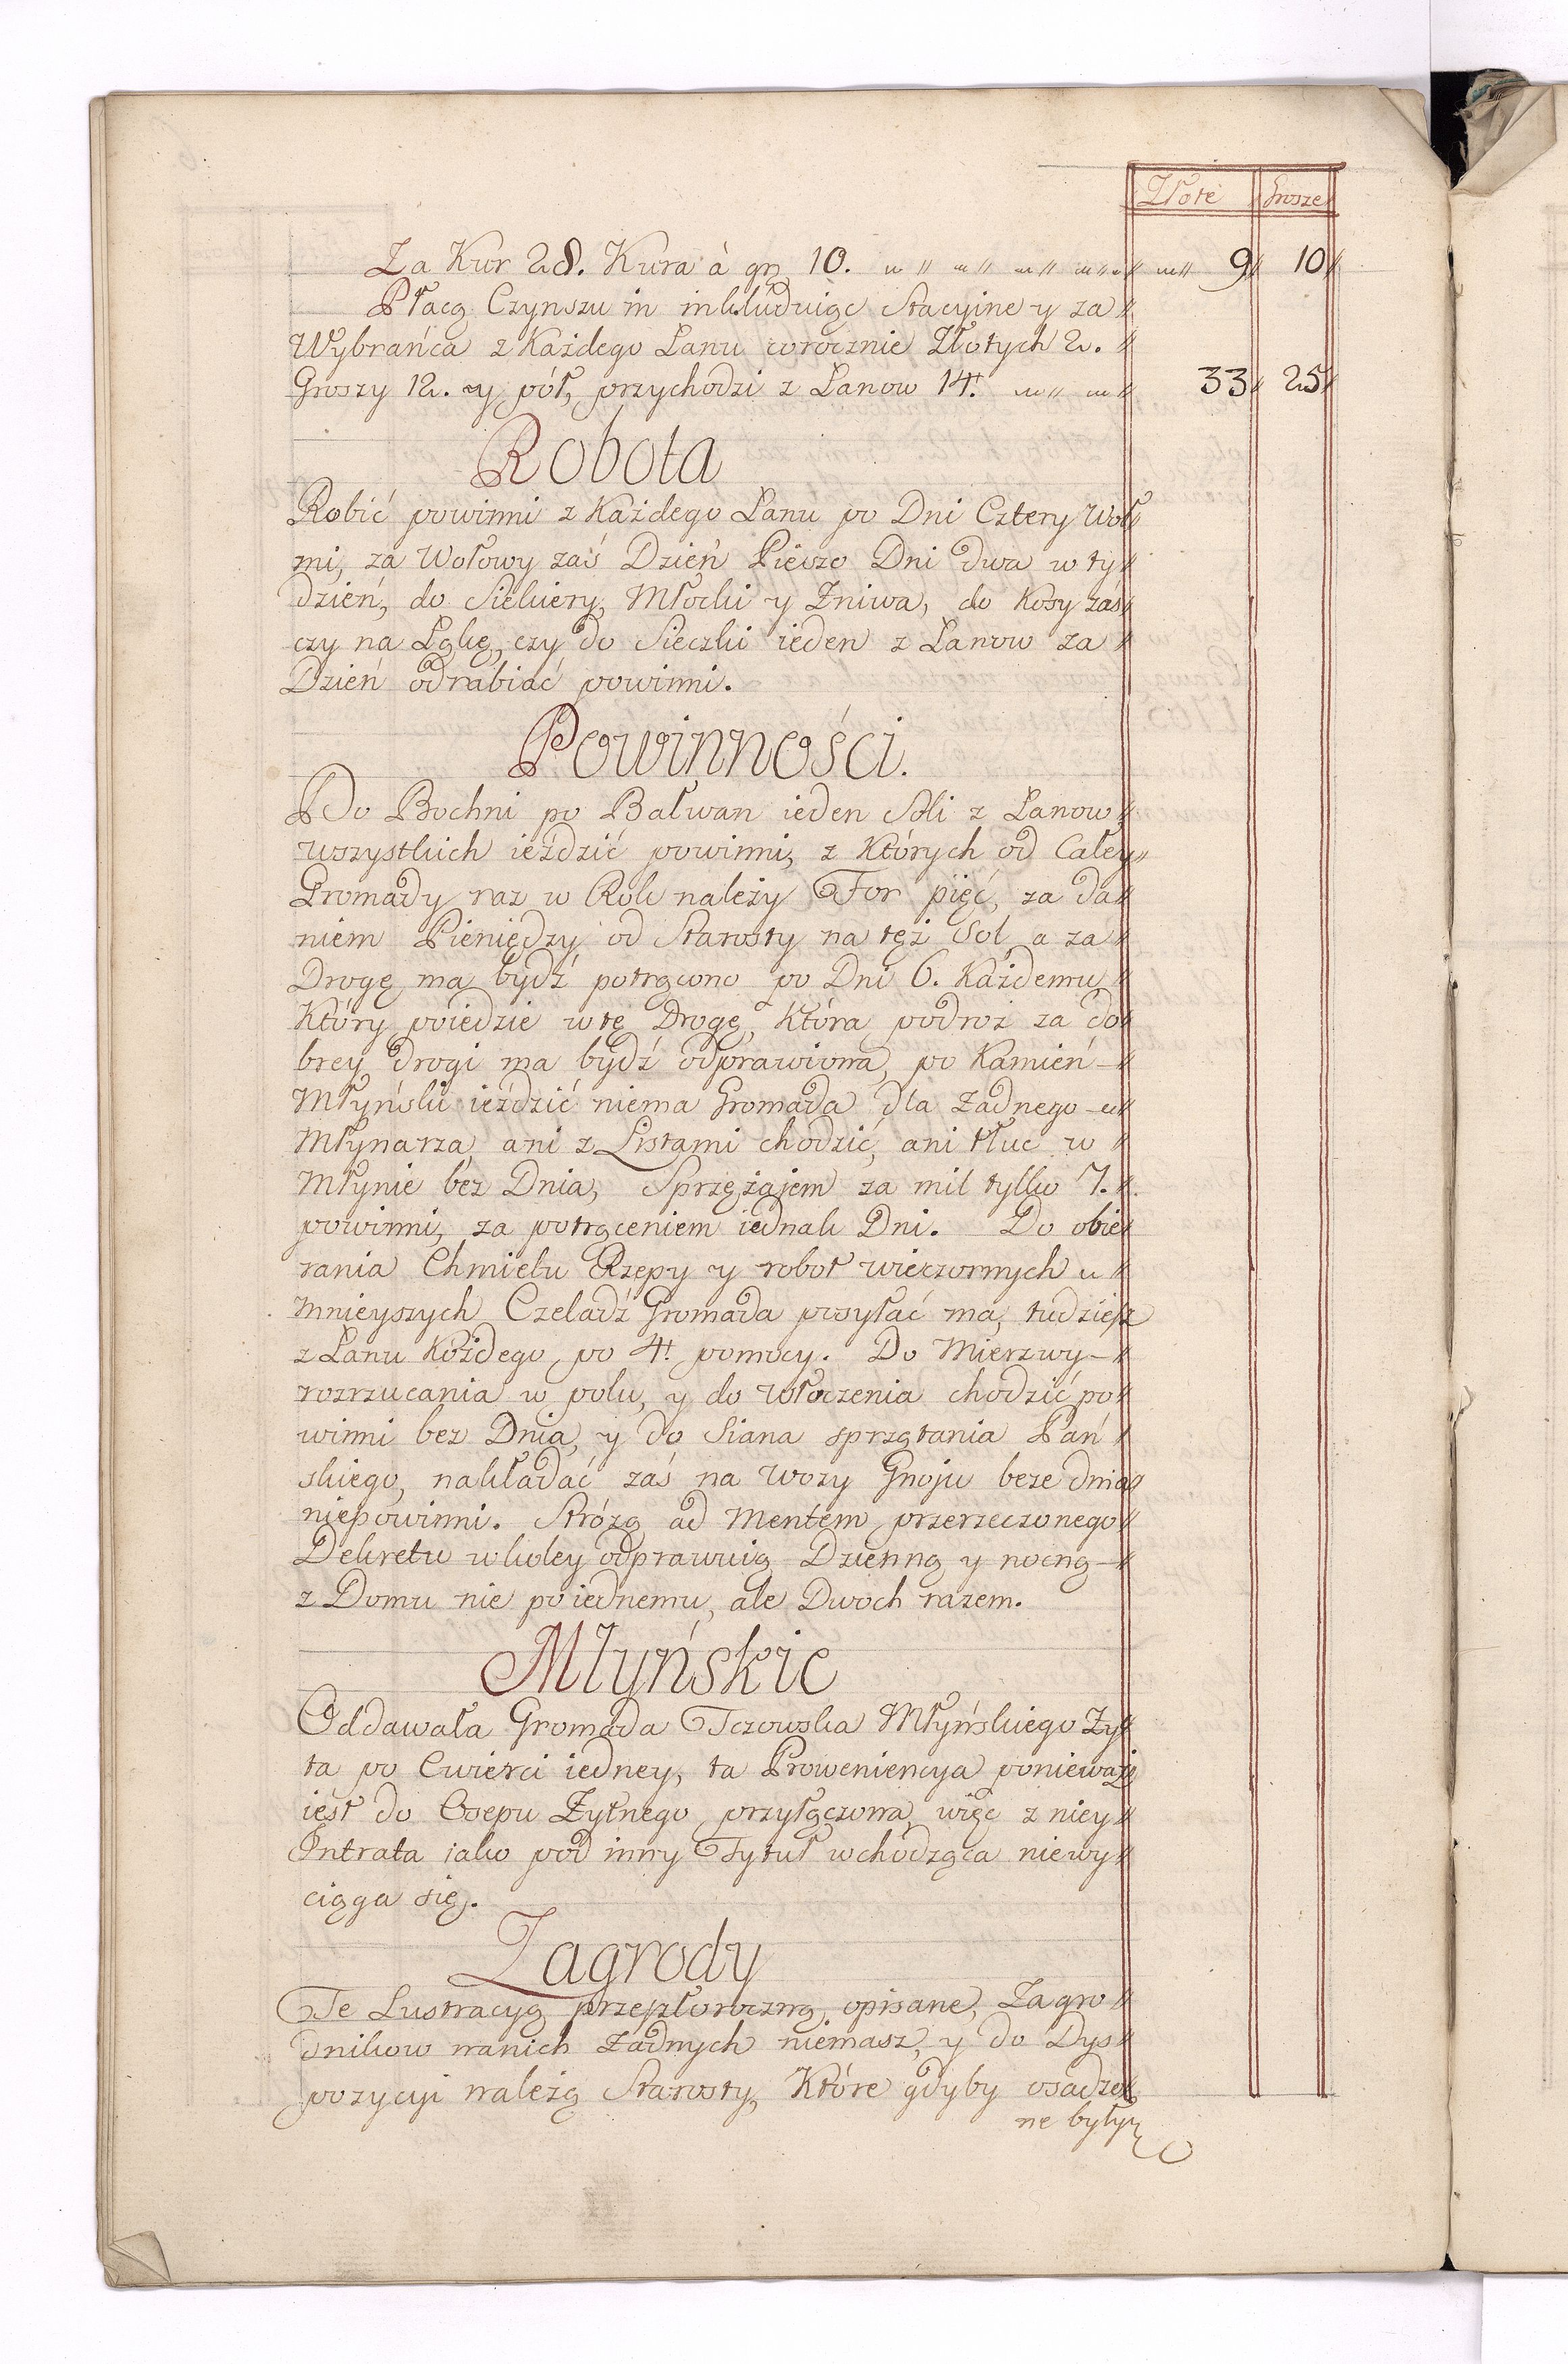 Złote Grosze
Za Kur 28. Kura à gr. 10. 9 10
Płacą Czynszu in inkluduiąc Stacyine y za
Wybrańca z Każdego Łanu corocznie Złotych 2.
Groszy 12. y pół, przychodzi z Łanow 14. 33 25
Robota
Robić powinni z Każdego Łanu po Dni Cztery Woł
mi, za Wołowy zaś Dzień Pieszo Dni dwa w ty
dzień, do Siekiery, Młocki y Żniwa, do Kosy zaś
czy na Łąkę, czy do Sieczki ieden z Łanow za
Dzień odrabiać powinni.
Powinności.
Do Bochni po Bałwan ieden Soli z Łanow
wszystkich ieździć powinni, z Których od Całey
Gromady raz w Rok należy For pięć, za da
niem Pieniędzy od Starosty na tęż Sól, a za
Drogę ma bydź potrącono po Dni 6. Każdemu
Który poiedzie w tę Drogę, Która podroż za do
brey drogi ma bydź odprawiona, po Kamień
Młyński ieździć niema Gromada dla Żadnego
Młynarza, ani z Listami chodzić, ani tłuc w
Młynie bez Dnia, Sprzężajem za mil tylko 7.
powinni, za potrąceniem iednak Dni. Do obie
rania Chmielu Rzepy y robot wieczornych
mnieyszych Czeladź Gromada posyłać ma, tudziesz
z Łanu Kożdego po 4. pomocy. Do Mierzwy
rozrzucania w polu, y do włoczenia chodzić po
winni bez Dnia, y do Siana sprzątania Pań
skiego, nakładać zaś na wozy Gnoju beze dnia
niepowinni. Stróżą ad Mentem przerzeczonego
Dekretu w koley odprawuią Dzienną y nocną
z Domu nie poiednemu, ale Dwoch razem.
Młyńskie
Oddawała Gromada Tczowska Młyńskiego Ży
ta po Cwierci iedney, ta Proweniencya ponieważ
iest do Osepu Żytnego przyłączona, więc z niey
Intrata iako pod inny Tytuł wchodząca niewy
ciąga się.
Zagrody
Te Lustracyą przeszłoroczną, opisane, Zagro
dnikow nanich Żadnych niemasz, y do Dys
pozycyi należą Starosty, Które gdyby osadzo
ne były